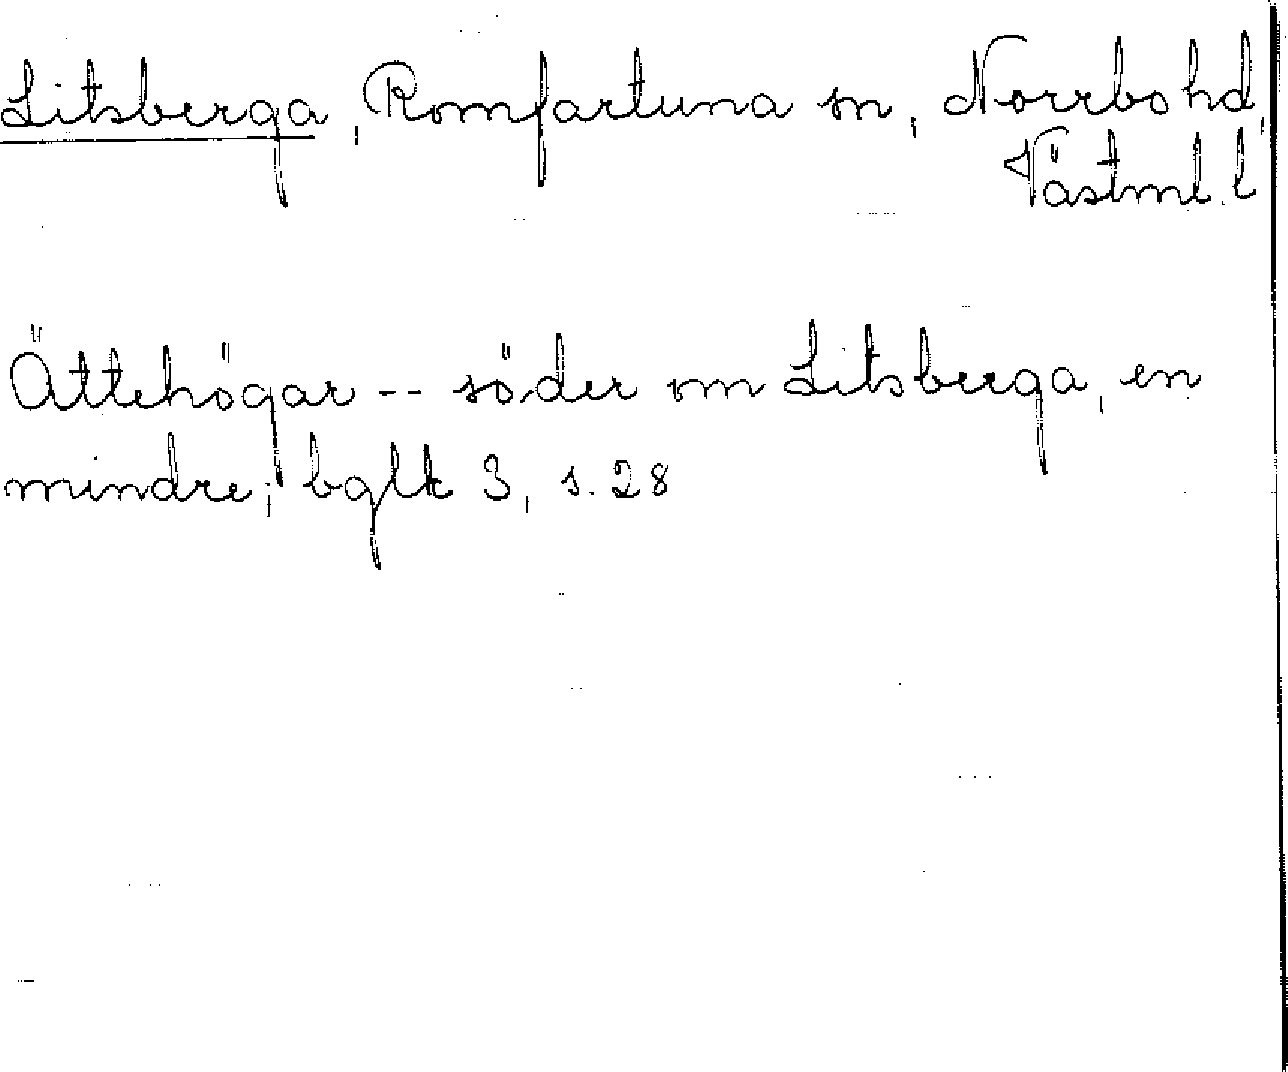 Litsberga, Romfartuna sn, Norrbo hd,
Västml. l
Ättehögar -- söder om Litsberga, en
mindre; bglk 3, s. 28